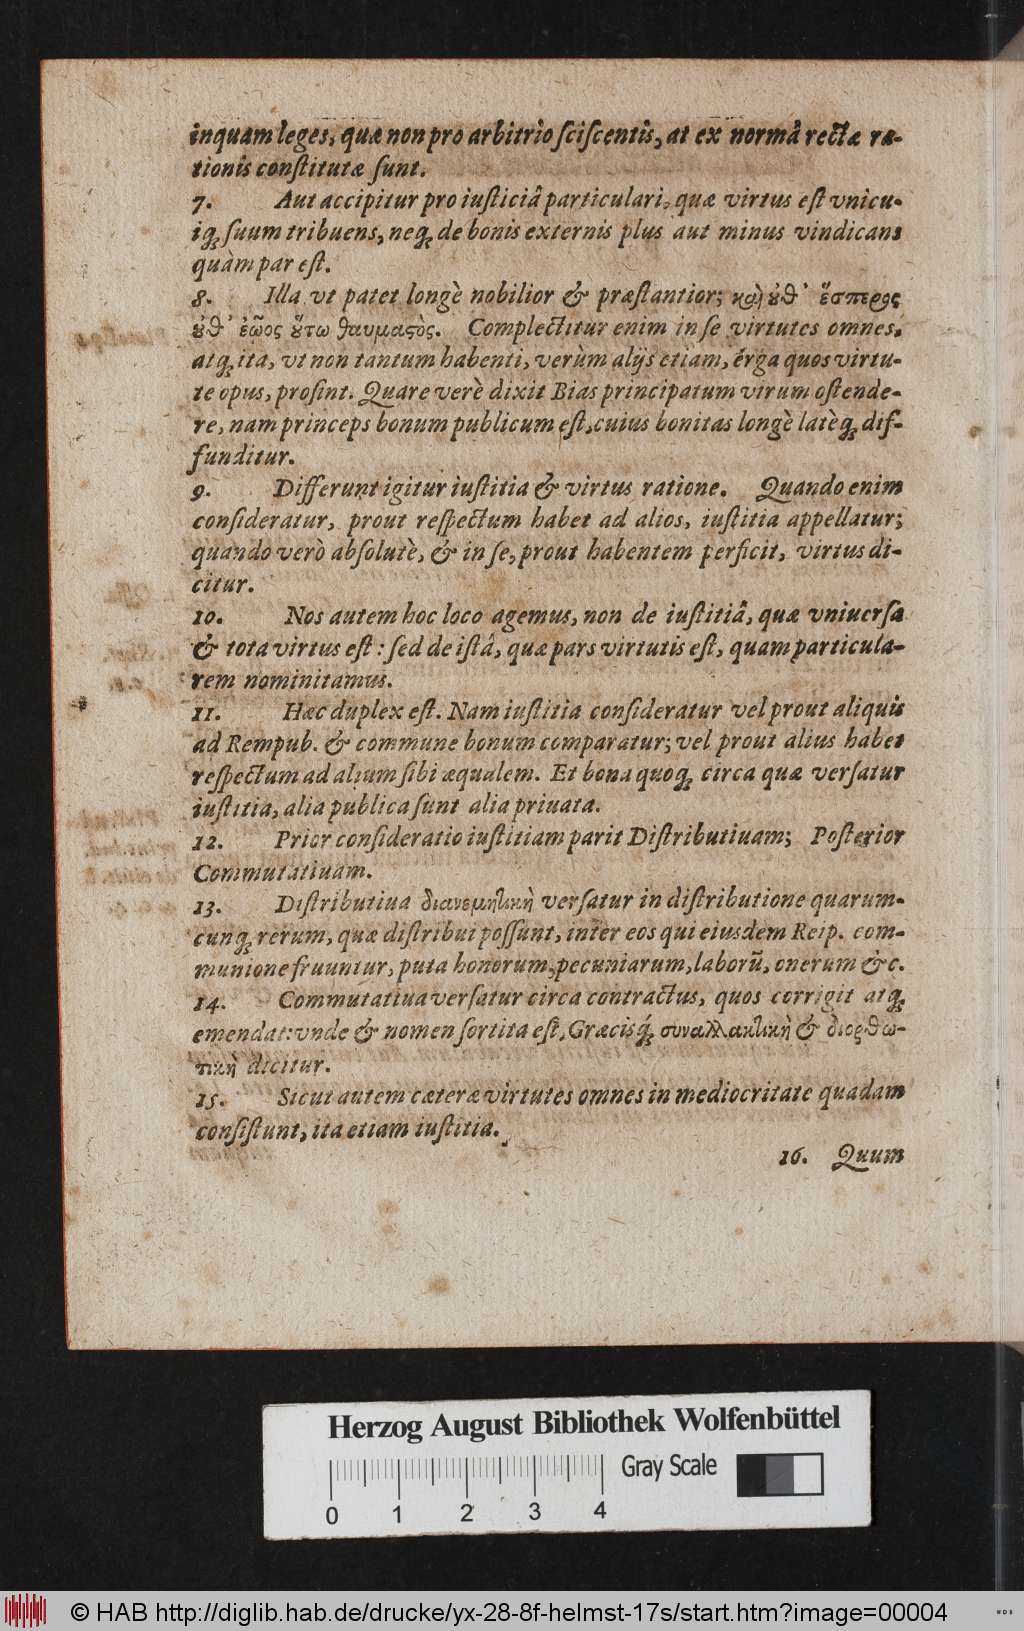 inquam leges, quæ non pro arbitrio ſciſcentis, at ex normâ rectæ ra-
tionis conſtitutæ ſunt.
7. Aut accipitur pro iuſticiâ particulari, quæ virtus eſt vnicu-
iq́; ſuum tribuens, neq́; de bonis externis plus aut minus vindicans
quàm par eſt.
8. Illa vt patet longè nobilior & præſtantior; καὶ ȣ̓θ᾽ ἕσπερος
ȣ̓θ᾽ ἑῶος ȣ̔́τω θαυμαϛὸς. Complectitur enim in ſe virtutes omnes,
atq́; ita, vt non tantum habenti, verùm alijs etiam, érga quos virtu-
te opus, proſint. Quare verè dixit Bias principatum virum oſtende-
re, nam princeps bonum publicum eſt, cuius bonitas longè latèq́; dif-
funditur.
9. Differunt igitur iuſtitia & virtus ratione. Quando enim
conſideratur, prout reſpectum habet ad alios, iuſtitia appellatur;
quando verò abſolutè, & in ſe, prout habentem perficit, virtus di-
citur.
10. Nos autem hoc loco agemus, non de iuſtitiâ, quæ vniuerſa
& tota virtus eſt: ſed de iſtâ, quæ pars virtutis eſt, quam particula-
rem nominitamus.
11. Hæc duplex eſt. Nam iuſtitia conſideratur vel prout aliquis
ad Rempub. & commune bonum comparatur; vel prout alius habet
reſpectum ad alium ſibi æqualem. Et bona quoq́; circa quæ verſatur
iuſtitia, alia publica ſunt alia priuata.
12. Prior conſideratio iuſtitiam parit Diſtributiuam; Poſterior
Commutatiuam.
13. Diſtributiua διανεμητικὴ verſatur in diſtributione quarum-
cunq́; rerum, quæ diſtribui poſſunt, inter eos qui eiusdem Reip. com-
munione fruuntur, puta honorum, pecuniarum, laborũ, onerum &c.
14. Commutatiua verſatur circa contractus, quos corrigit atq́;
emendat: vnde & nomen ſortita eſt, Græcisq́; συναλλακτικὴ & διορθω-
τικὴ dicitur.
15. Sicut autem cæteræ virtutes omnes in mediocritate quadam
conſiſtunt, ita etiam iuſtitia.
16. Quum
Herzog August Bibliothek Wolfenbüttel
Gray Scale
0 1 2 3 4
© HAB http://diglib.hab.de/drucke/yx-28-8f-helmst-17s/start.htm?image=00004